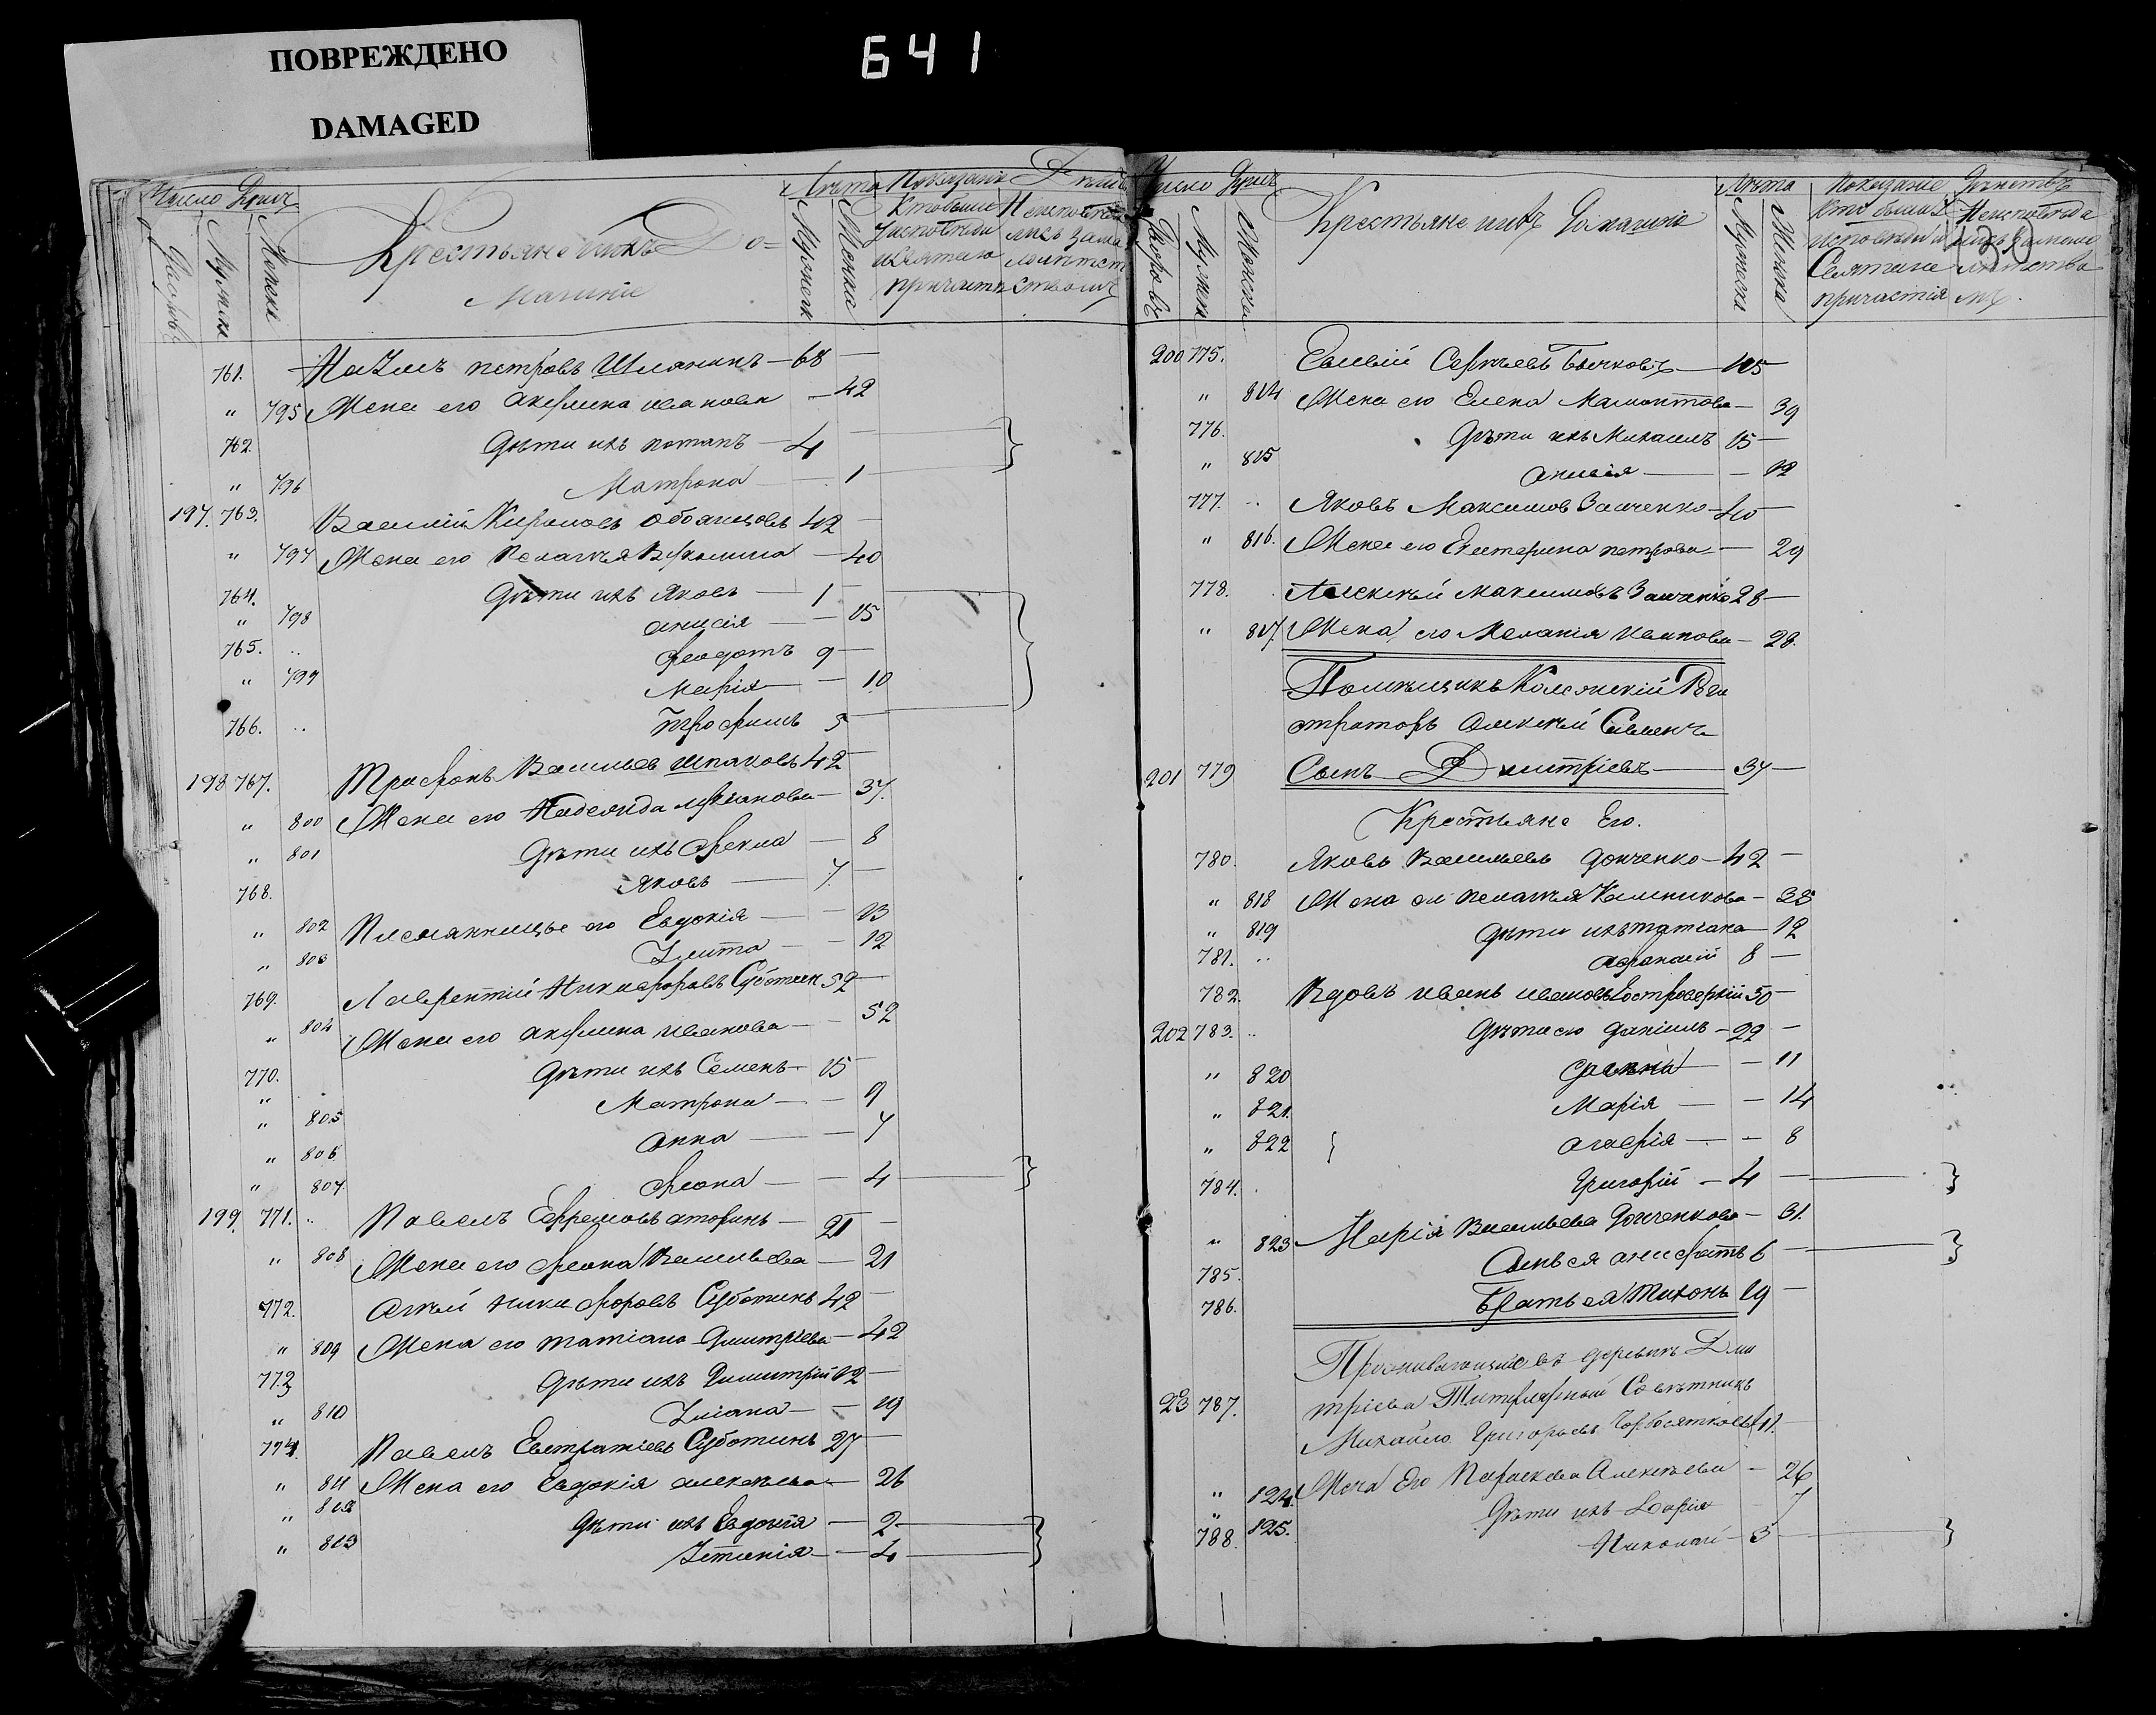 ПОВРЕЖДЕНО
DAMAGED
641
Число Душъ
Дворовъ
Мужска
Женска
Крестьяне ихъ До=
машніе
Лѣта
Мужеск
Женска
Показаніе Дѣйст
Кто были
у исповѣди
и святаго
причастія
Неисповѣда
лись за ма
лолѣтст
761. петровъ Шлянинъ — 68 —
" 795 Жена его Акулина иванова — 42
762. Дѣти ихъ потапъ — 4 —
" 796 Матрона — 1
197. 763. Василій Обоянцовъ 42 —
" 797 Жена его Пелагѣя — 40
764. Дѣти ихъ Яковъ — 1 —
" 798 анисія — — 15
765. .. Феодотъ 9 —
" 799 Марія — — 10
766. .. Трофимъ 5 —
198 767. Трифонъ Васильев Шпаковъ 42 —
" 800 Жена его Надежда — 37.
" 801 Дѣти ихъ Фекла — 8
768. Яковъ — 7. —
" 802 его Евдокія — — 13
" 803 — — 12
769. Лаврентій Никифоровъ Суботин 52 —
" 804 Жена его Акулина иванова — — 52
770. Дѣти ихъ Семенъ — 15 —
"
" 805 Матрона — — 9
" 806 анна — — 7
" 807. Феона — — 4
199. 771. .. Павелъ Ефремовъ — 21 —
" 808 Жена его Феона Васильева — 21
772. Никифоровъ Суботинъ 42 —
" 809 Жена его татіана Дмитріева — 42
773 Дѣти ихъ Димитрій 12 —
" 810 Уліана — — 19
774. Павелъ Евстратіевъ Суботинъ 27 —
" 811 Жена его Евдокія алексѣева — 26
" 812 Дѣти ихъ Евдокія — 2
" 813 — — 4
Число Душъ
Дворовъ
Мужска
Женска
Крестьяне ихъ Домашніе
Лѣта
Мужеска
Женска
Показаніе Дѣйствъ
Кто были у
исповѣди и
Святаго
причастія
Неисповѣда
лись за мало
лѣтство
мъ.
200 775. Сергѣевъ Бычковъ — 45 —
" 814 Жена его Елена Мамонтова — 39
776. Дѣти ихъ Михаилъ 15 —
" 815 анисія — — 12
777. .. Яковъ Максимов Заиченко — 40 —
" 816. Жена его Екатерина петрова — 29
778. Алексѣй Максимовъ Заиченко 28 —
" 817. Жена его Меланія Иванова — 28.
Помѣщикъ Колежскій Реги
страторъ Алексѣй
201 779 Сынъ Дмитріевъ — 37 —
Крестьяне Его.
780. Яковъ Васильевъ Донченко — 42 —
" 818 Жена его Пелагѣя — 33
" 819 Дѣти ихъ татіана — 12
781. .. Афанасій 8 —
782. Вдовъ иванъ ивановъ 50 —
202 783. .. Дѣти его Даніилъ — 22 —
" 820 — 11
" 821. Марія — — 14
" 822 — — 8
784. Григорій — 4 —
" 823 Марія Васильева Донченкова — 31.
785. Сынъ ея 6 —
786. Братъ ея Тихонъ 19 —
Проживающіе въ деревнѣ Дми
203 787. тріева Титулярный Совѣтникъ
Михайло Григорьевъ
" 124. Жена Его Параскева Алексѣева — 26
" 125. Дѣти ихъ Дарія — 7
788. Николай — 3